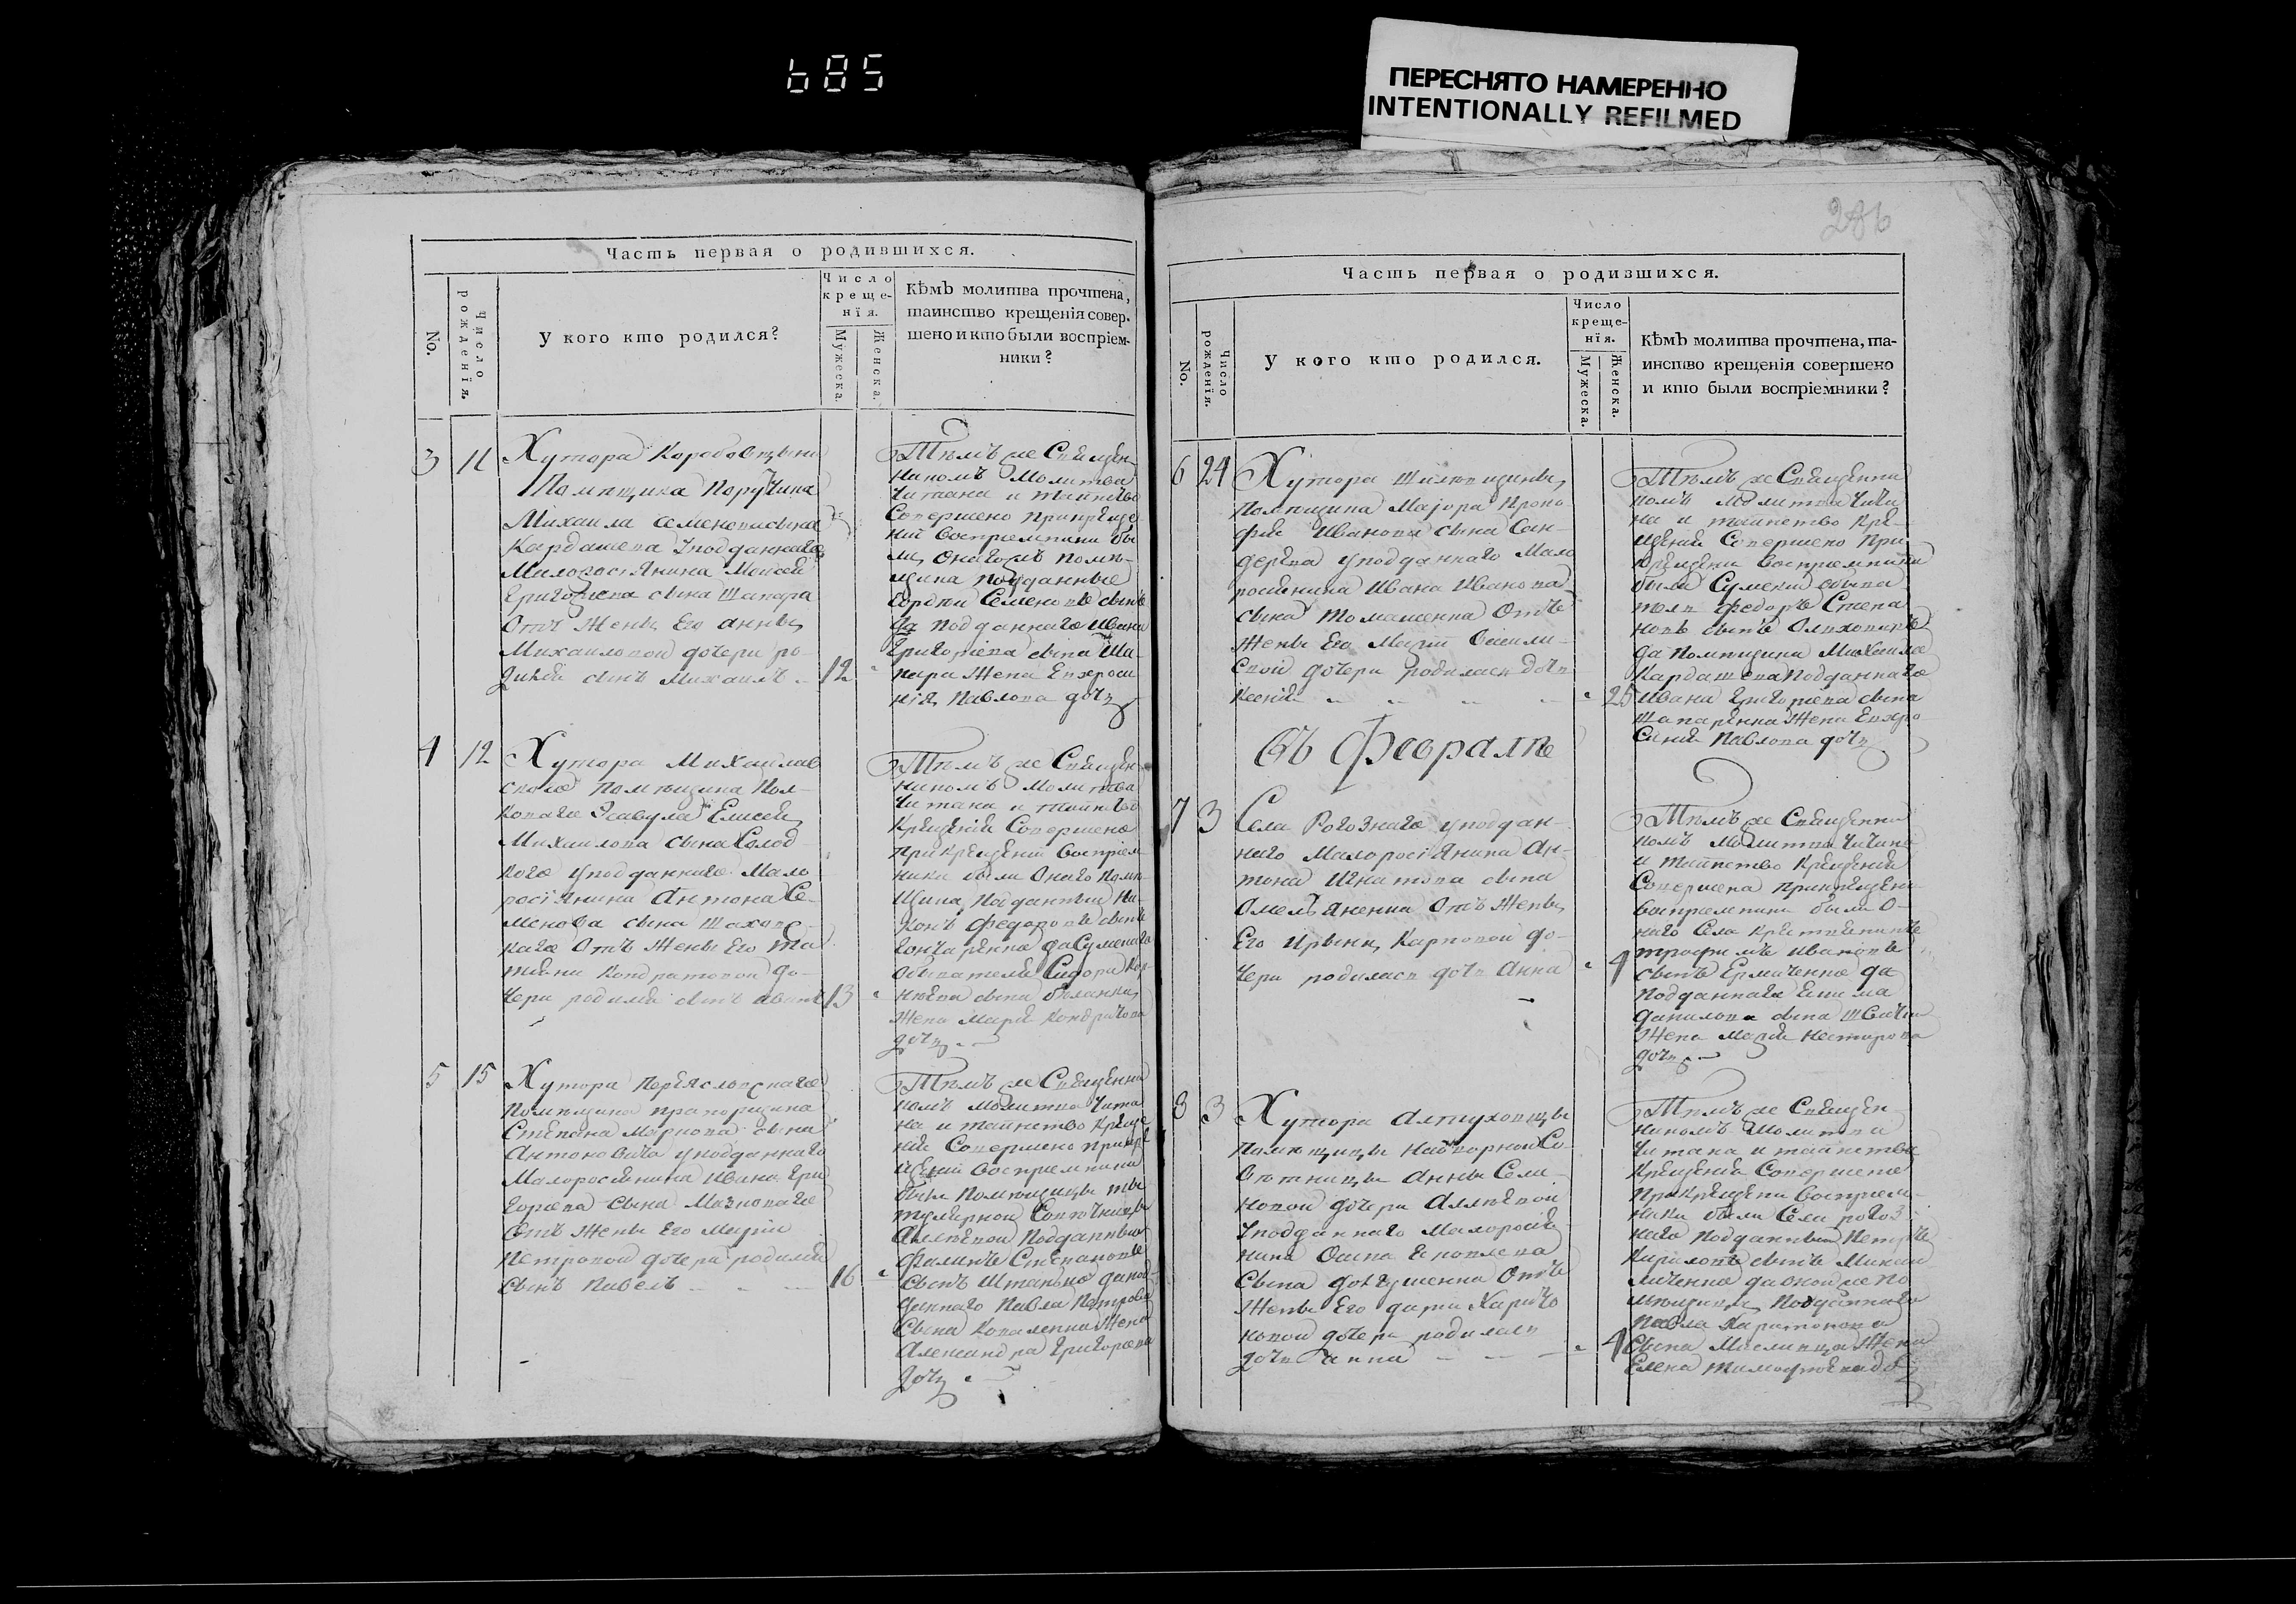 685
ПЕРЕСНЯТО НАМЕРЕННО
INTENTIONALLY REFILMED
286
Часть первая о родившихся.
No.
Число рожденїя.
У кого кто родился?
Число креще-
нїя.
Мужеска.
Женска.
Кѣмъ молитва прочтена,
таинство крещенїя совер-
шено и кто были воспрїем-
ники?
3
11
Хутора
Помѣщика Поручика
Михаила Семенова сына
Кардашева Уподданнаго
Малоросїянина Моисея
Григорїева сына Шапара
Отъ Жены Его Анны
Михаиловой дочери ро-
дился сынъ Михаилъ
12
Тѣмъ же Священ
никомъ Молитва
Читана и таинство
Совершено при креще
нїи Воспрїемники бы
ли Онагожъ Помѣ-
щика Подданные
Семеновъ сынъ
Да подданнаго Ивана
Григорїева сына Ша-
пара Жена Евхроси
нїя Павлова дочь
4
12
Хутора Михаилов
скаго Помѣщика Пол-
коваго Эсавула Елисея
Михаилова сына Солод
кого уподданнаго Мало
росїянина Антона Се-
менова сына
Отъ Жены Его Та
тїяны Кондратовой до-
чери родился сынъ
13
Тѣмъ же Священ-
никомъ Молитва
Читана и таинство
Крещенїя Совершено
При Крещенїи Воспрїем-
ники были Онаго Помѣ-
щика Подданный Ни-
конъ Федоровъ сынъ
Гончаренко да Сумскаго
Обывателя Сидора
сына
Жена Марїя Кондратова
дочь
5
15
Хутора Переясловскаго
Помѣщика прапорщика
Степана Маркова сына
Антоновича уподданнаго
Малоросїянина Ивана Гри
горїева сына
Отъ Жены Его Марїи
Петровой дочери родился
сынъ Павелъ
16
Тѣмъ же Священни
комъ Молитва Чита
на и таинство Креще
нїя Совершено прикре
щенїи Воспрїемники
были Помѣщицы ти
тулярной Совѣтницы
Подданный
Филипъ Степановъ
сынъ да под-
даннаго Павла Петрова
Сына Коваленка Жена
Александра Григорїева
дочь
Часть первая о родившихся.
No.
Число рожденїя.
У кого кто родился.
Число
креще-
нїя.
Мужеска.
Женска.
Кѣмъ молитва прочтена, та-
инство крещенїя совершено
и кто были воспрїемники?
6
24
Хутора
Помѣщика Маїора Проко
фїя Иванова сына Сан-
дерева уподданнаго Мало
росїянина Ивана Иванова
сына Томашенка Отъ
Жены Его Марїи Васили-
евой дочери родилась дочь
Ксенїя
25
Тѣмъ же Священни
комъ Молитва Чита
на и таинство Кре-
щенїя Совершено При
Крещенїи Воспрїемники
были Сумскїй обыва
тель Федоръ Степа
новъ сынъ
да Помѣщика Михаила
Кардашева Подданнаго
Ивана Григорїева сына
Шапаренка Жена Евхро
синїя Павлова дочь
Въ Февралѣ
7
3
Села Рогознаго уподдан-
наго Малоросїянина Ан-
тона Игнатова сына
Омельяненка Отъ Жены
Его Ирыны Карповой до-
чери родилась дочь Анна
4
Тѣмъ же Священни
комъ Молитва Читана
и таинство Крещенїя
Совершено Прикрещенїи
Воспрїемники были О-
наго Села
Трофимъ Ивановъ
сынъ Ермаченко да
Подданнаго
Данилова сына
Жена Марїя Нестерова
дочь
8
3
Хутора Алтуховщи
Помѣщицы Надворной Со-
вѣтницы Анны Семе-
новой дочери
Уподданнаго Малоросїя-
нина Осипа Яковлева
Сына Отъ
Жены Его Дарїи Харито
новой дочери родилась
дочь Анна
4
Тѣмъ же Священ
никомъ Молитва
Читана и таинство
Крещенїя Совершено
При Крещенїи Воспрїем-
ники были Села Рогоз-
наго Подданный Петръ
Кириловъ сынъ
да оной же По
мѣщицы Подданнаго
Павла Харитонова
Сына Жена
Елена Тимофѣева дочь